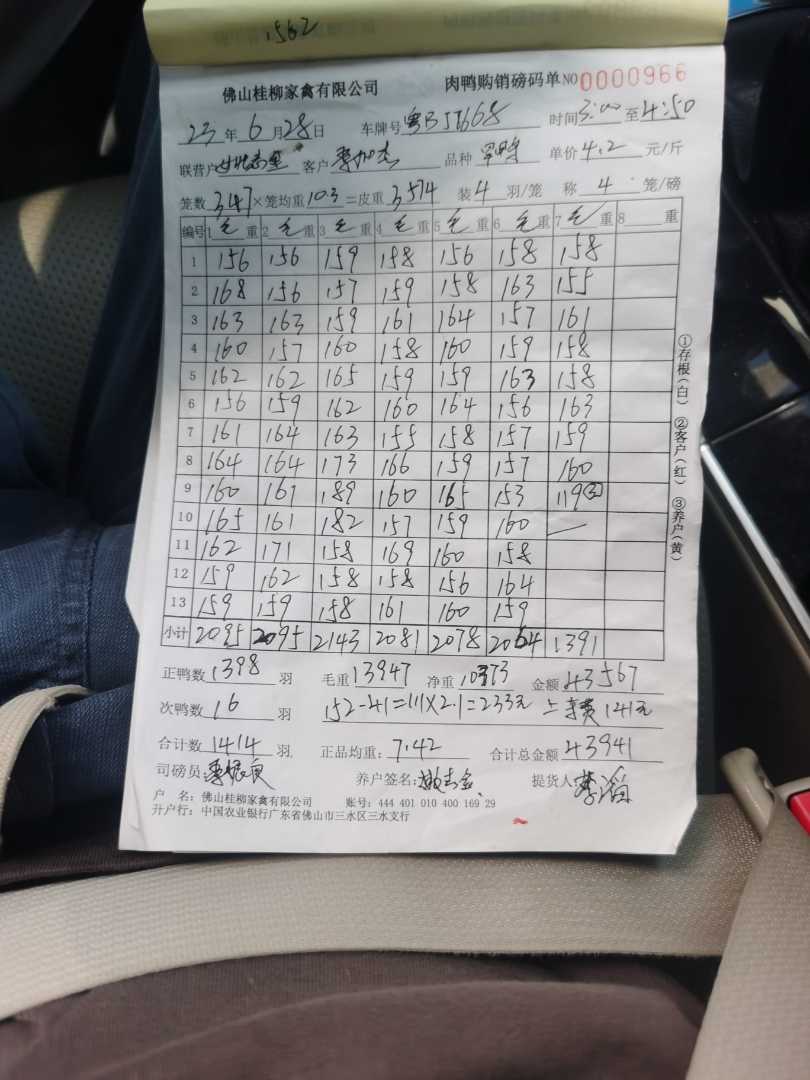 1562
佛山桂柳家禽有限公司 肉鸭购销磅码单 NO0000966
23年6月28日 车牌号 粤B 时间3:00至4:50
联营户 客户 品种 单价4.2元/斤
笼数347×笼均重10.3=皮重3574 装4羽/笼 称4笼/磅
编号 1毛重 2毛重 3毛重 4毛重 5毛重 6毛重 7毛重 8重
1 156 156 159 158 156 158 158
2 168 156 157 159 158 163 155
3 163 163 159 161 164 157 161
4 160 157 160 158 160 159 158
5 162 162 165 159 159 163 158
6 156 159 162 160 164 156 163
7 161 164 163 155 158 157 159
8 164 164 173 166 159 157 160
9 160 161 189 160 165 153 119③
10 165 161 182 157 159 160 —
11 162 171 158 169 160 158
12 159 162 158 158 156 164
13 159 159 158 161 160 159
小计 2095 2095 2143 2081 2078 2064 1391
正鸭数1398羽 毛重13947 净重10373 金额43567
次鸭数16羽 152-41=111×2.1=233元 141元
合计数1414羽 正品均重:7.42 合计总金额43941
司磅员: 养户签名: 提货人
户 名:佛山桂柳家禽有限公司 账号:444 401 010 400 169 29
开户行:中国农业银行广东省佛山市三水区三水支行
①存根(白) ②客户(红) ③养户(黄)